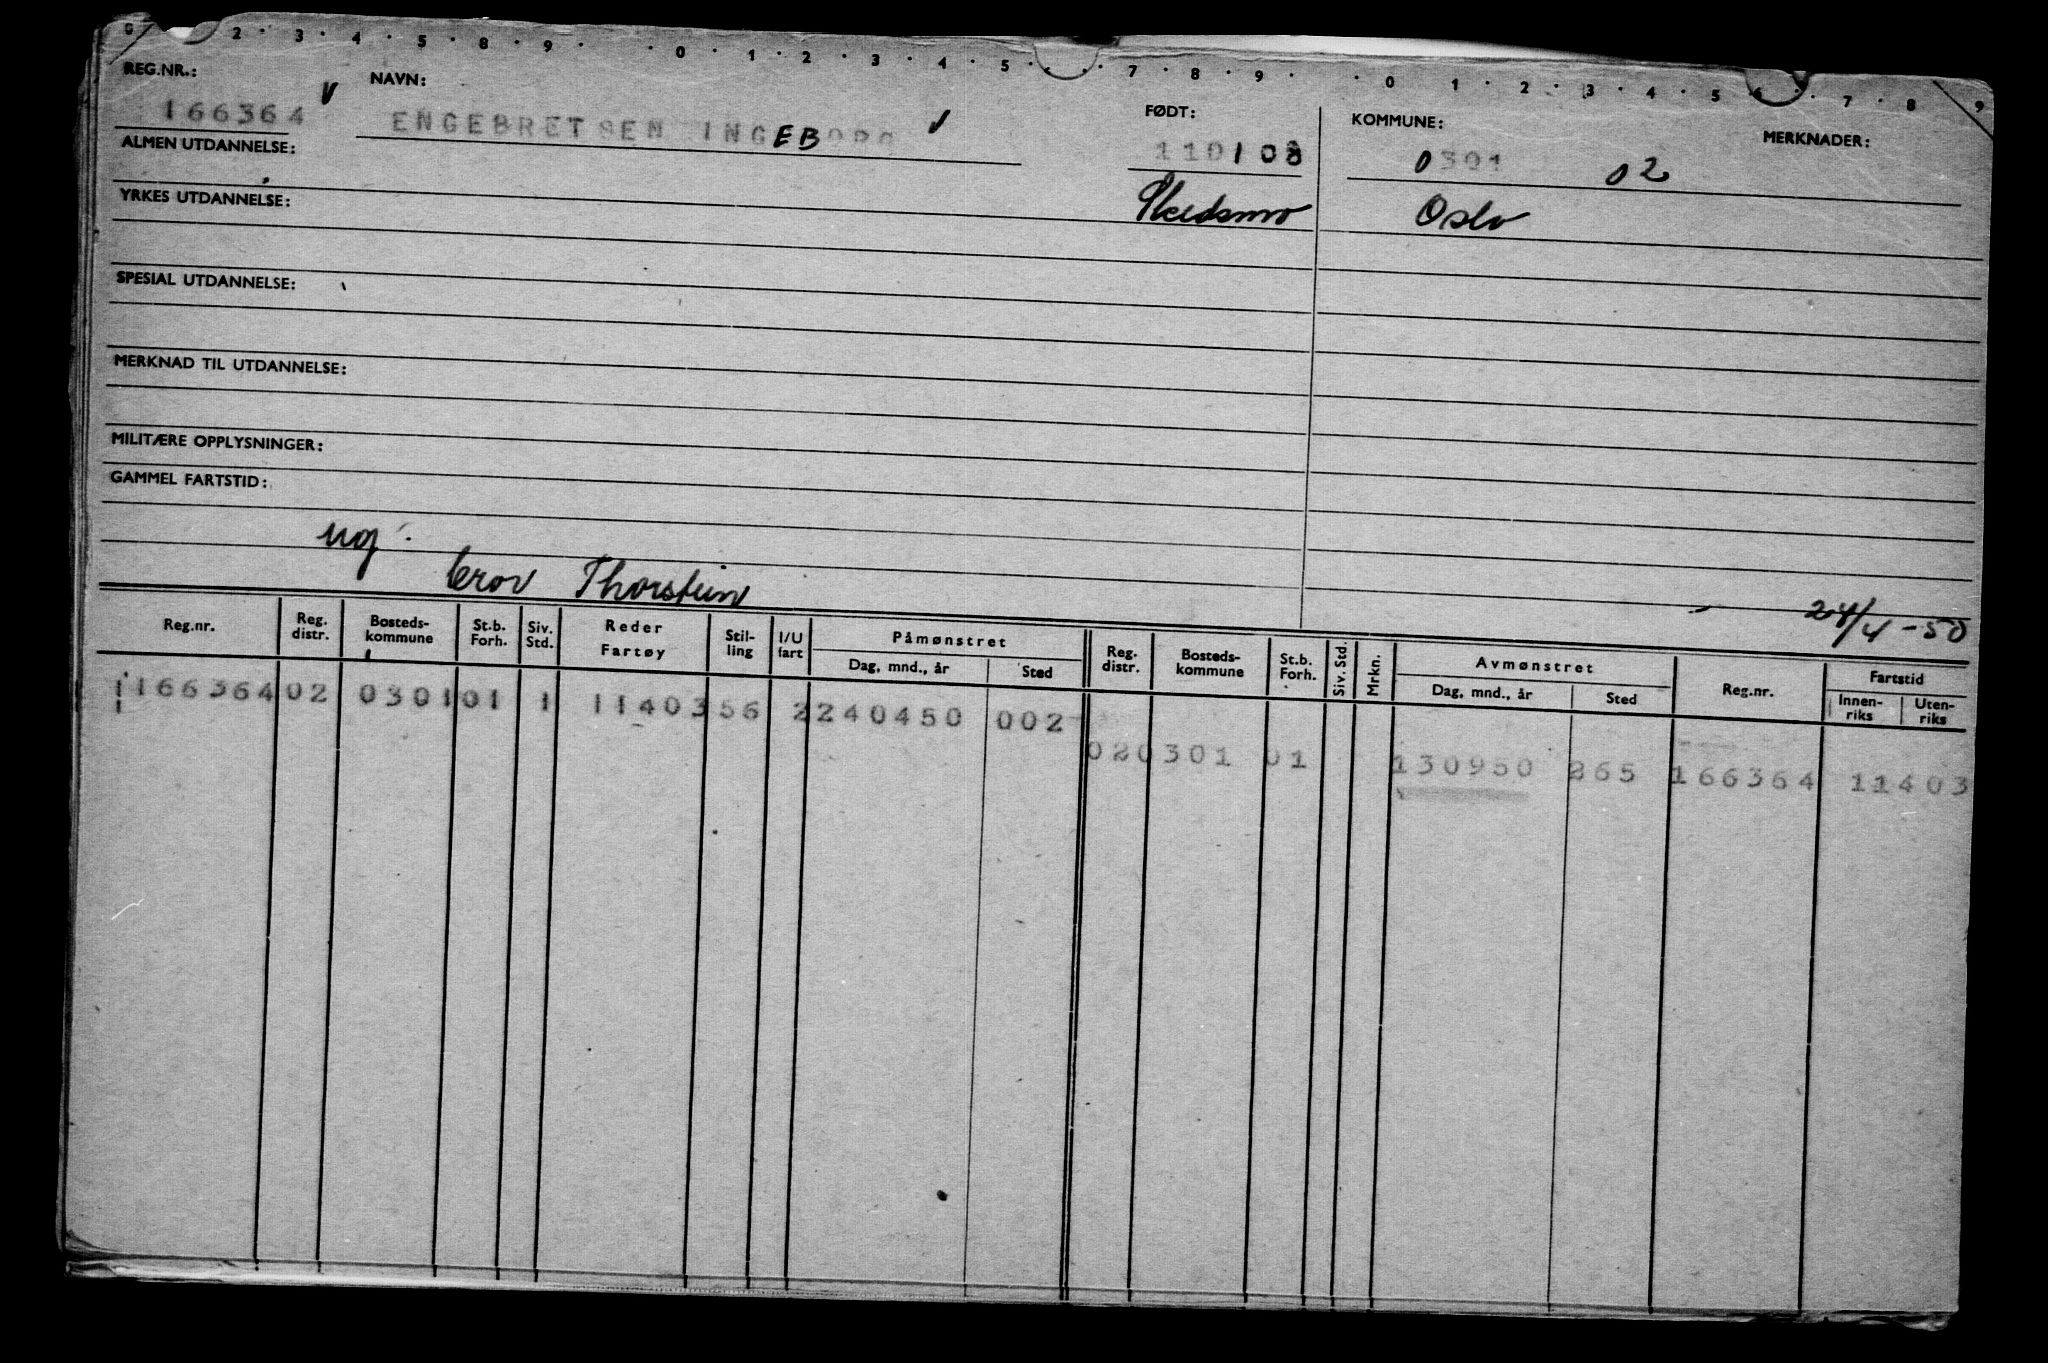 0 2 · 3 · 4 · 5 · 8 · 9 · · 0 · 1 · 2 · 3 · 4 · 5 · · · 7 · 8 · 9 · · 0 · 1 · 2 · 3 · 4 · 5 · 6 · 7 · 8 · 9
REG.NR.: NAVN: FØDT: KOMMUNE: MERKNADER:
166364 ENGEBRETSEN INGEBORG 110108 0301 02
ALMEN UTDANNELSE:
YRKES UTDANNELSE: Skedsmo Oslo
SPESIAL UTDANNELSE:
MERKNAD TIL UTDANNELSE:
MILITÆRE OPPLYSNINGER:
GAMMEL FARTSTID:
ug.
bror Thorstein
24/4-50
Reg.nr. Reg. distr. Bosteds-kommune St.b. Forh. Siv. Std. Reder Fartøy Stil-ling I/U fart Påmønstret Dag, mnd., år Sted Reg. distr. Bosteds-kommune St.b. Forh. Siv. Std. Mrkn. Avmønstret Dag, mnd., år Sted Reg.nr. Fartstid Innen-riks Uten-riks
1166364 02 0301 01 1 11403 56 2 240450 002
02 0301 01 130950 265 166364 11403